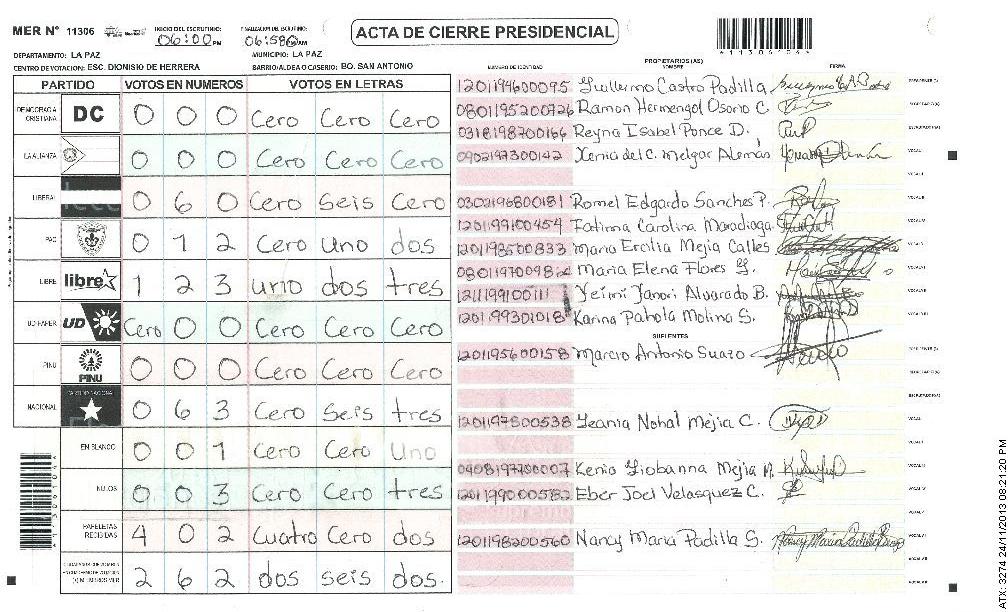 MER Nº 11306
INICIO DEL ESCRUTINIO: 06:00 PM
FINALIZACION DEL ESCRUTINIO: 06:58
ACTA DE CIERRE PRESIDENCIAL
DEPARTAMENTO: LA PAZ
MUNICIPIO: LA PAZ
CENTRO DE VOTACION: ESC. DIONISIO DE HERRERA
BARRIO/ALDEA O CASERIO: BO. SAN ANTONIO
PARTIDO VOTOS EN NUMEROS VOTOS EN LETRAS
DEMOCRACIA CRISTIANA DC 0 0 0 Cero Cero Cero
LA ALIANZA 0 0 0 Cero Cero Cero
LIBERAL 0 6 0 Cero seis Cero
PAC 0 1 2 Cero Uno dos
LIBRE libre 1 2 3 uno dos tres
UD-FAPER UD Cero 0 0 Cero Cero Cero
PINU PINU 0 0 0 Cero Cero Cero
NACIONAL 0 6 3 Cero Seis tres
EN BLANCO 0 0 1 Cero Cero Uno
NULOS 0 0 3 Cero Cero tres
PAPELETAS RECIBIDAS 4 0 2 Cuatro Cero dos
2 6 2 dos seis dos.
NUMERO DE IDENTIDAD
PROPIETARIOS (AS)
NOMBRE
FIRMA
1201194600095 Guillermo Castro Padilla
0801195200726 Ramon Hermengol Osorio C.
0318198700166 Reyna Isabel Ponce D.
0902197300142 Xenia del C. Melgar Alemás
0302196800181 Romel Edgardo Sanches P.
1201199100454 Fatima Carolina Maradiaga
1201193500833 Maria Ercilia Mejia Calles
Maria Elena Flores G.
1211199100111 Yeimi Yanori Alvarado B.
1201199301018 Karina Pahola Molina S.
SUPLENTES
1201195600158 Marcio Antonio Suazo
1201197800538 Yeania Nohal Mejia C.
Kenia Giobanna Mejia M.
1201199000582 Eber Joel Velasquez C.
1201198200560 Nancy Maria Padilla S.
ATX: 3274 24/11/2013 08:21:20 PM